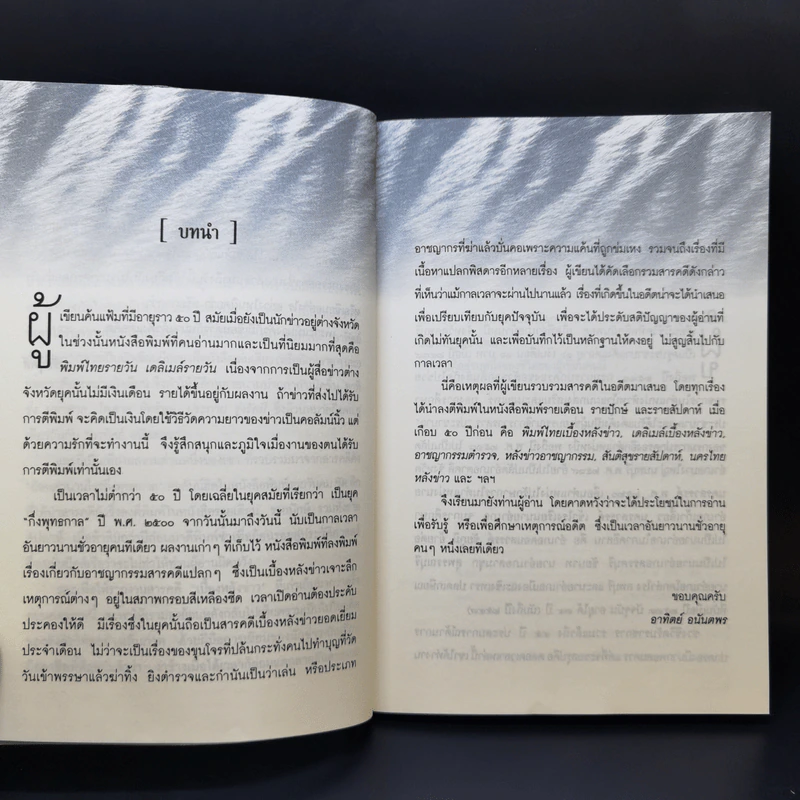 [ บทนำ ]
ผู้เขียนค้นแฟ้มที่มีอายุราว ๕๐ ปี สมัยเมื่อยังเป็นนักข่าวอยู่ต่างจังหวัด
ในช่วงนั้นหนังสือพิมพ์ที่คนอ่านมากและเป็นที่นิยมมากที่สุดคือ
พิมพ์ไทยรายวัน เดลิเมล์รายวัน เนื่องจากการเป็นผู้สื่อข่าวต่าง
จังหวัดยุคนั้นไม่มีเงินเดือน รายได้ขึ้นอยู่กับผลงาน ถ้าข่าวที่ส่งไปได้รับ
การตีพิมพ์ จะคิดเป็นเงินโดยใช้วิธีวัดความยาวของข่าวเป็นคอลัมน์นิ้ว แต่
ด้วยความรักที่จะทำงานนี้ จึงรู้สึกสนุกและภูมิใจเมื่องานของตนได้รับ
การตีพิมพ์เท่านั้นเอง
เป็นเวลาไม่ต่ำกว่า ๕๐ ปี โดยเฉลี่ยในยุคสมัยที่เรียกว่า เป็นยุค
“กึ่งพุทธกาล” ปี พ.ศ. ๒๕๐๐ จากวันนั้นมาถึงวันนี้ นับเป็นกาลเวลา
อันยาวนานชั่วอายุคนทีเดียว ผลงานเก่าๆ ที่เก็บไว้ หนังสือพิมพ์ที่ลงพิมพ์
เรื่องเกี่ยวกับอาชญากรรมสารคดีแปลกๆ ซึ่งเป็นเบื้องหลังข่าวเจาะลึก
เหตุการณ์ต่างๆ อยู่ในสภาพกรอบสีเหลืองซีด เวลาเปิดอ่านต้องประคับ
ประคองให้ดี มีเรื่องซึ่งในยุคนั้นถือเป็นสารคดีเบื้องหลังข่าวยอดเยี่ยม
ประจำเดือน ไม่ว่าจะเป็นเรื่องของขุนโจรที่ปล้นกระทั่งคนไปทำบุญที่วัด
วันเข้าพรรษาแล้วฆ่าทิ้ง ยิงตำรวจและกำนันเป็นว่าเล่น หรือประเภท
อาชญากรที่ฆ่าแล้วบั่นคอเพราะความแค้นที่ถูกข่มเหง รวมจนถึงเรื่องที่มี
เนื้อหาแปลกพิสดารอีกหลายเรื่อง ผู้เขียนได้คัดเลือกรวมสารคดีดังกล่าว
ที่เห็นว่าแม้กาลเวลาจะผ่านไปนานแล้ว เรื่องที่เกิดขึ้นในอดีตน่าจะได้นำเสนอ
เพื่อเปรียบเทียบกับยุคปัจจุบัน เพื่อจะได้ประดับสติปัญญาของผู้อ่านที่
เกิดไม่ทันยุคนั้น และเพื่อบันทึกไว้เป็นหลักฐานให้คงอยู่ ไม่สูญสิ้นไปกับ
กาลเวลา
นี่คือเหตุผลที่ผู้เขียนรวบรวมสารคดีในอดีตมาเสนอ โดยทุกเรื่อง
ได้นำลงตีพิมพ์ในหนังสือพิมพ์รายเดือน รายปักษ์ และรายสัปดาห์ เมื่อ
เกือบ ๕๐ ปีก่อน คือ พิมพ์ไทยเบื้องหลังข่าว, เดลิเมล์เบื้องหลังข่าว,
อาชญากรรมตำรวจ, หลังข่าวอาชญากรรม, สันติสุขรายสัปดาห์, นครไทย
หลังข่าว และ ฯลฯ
จึงเรียนมายังท่านผู้อ่าน โดยคาดหวังว่าจะได้ประโยชน์ในการอ่าน
เพื่อรับรู้ หรือเพื่อศึกษาเหตุการณ์อดีต ซึ่งเป็นเวลาอันยาวนานชั่วอายุ
คนๆ หนึ่งเลยทีเดียว
ขอบคุณครับ
อาทิตย์ อนันตพร